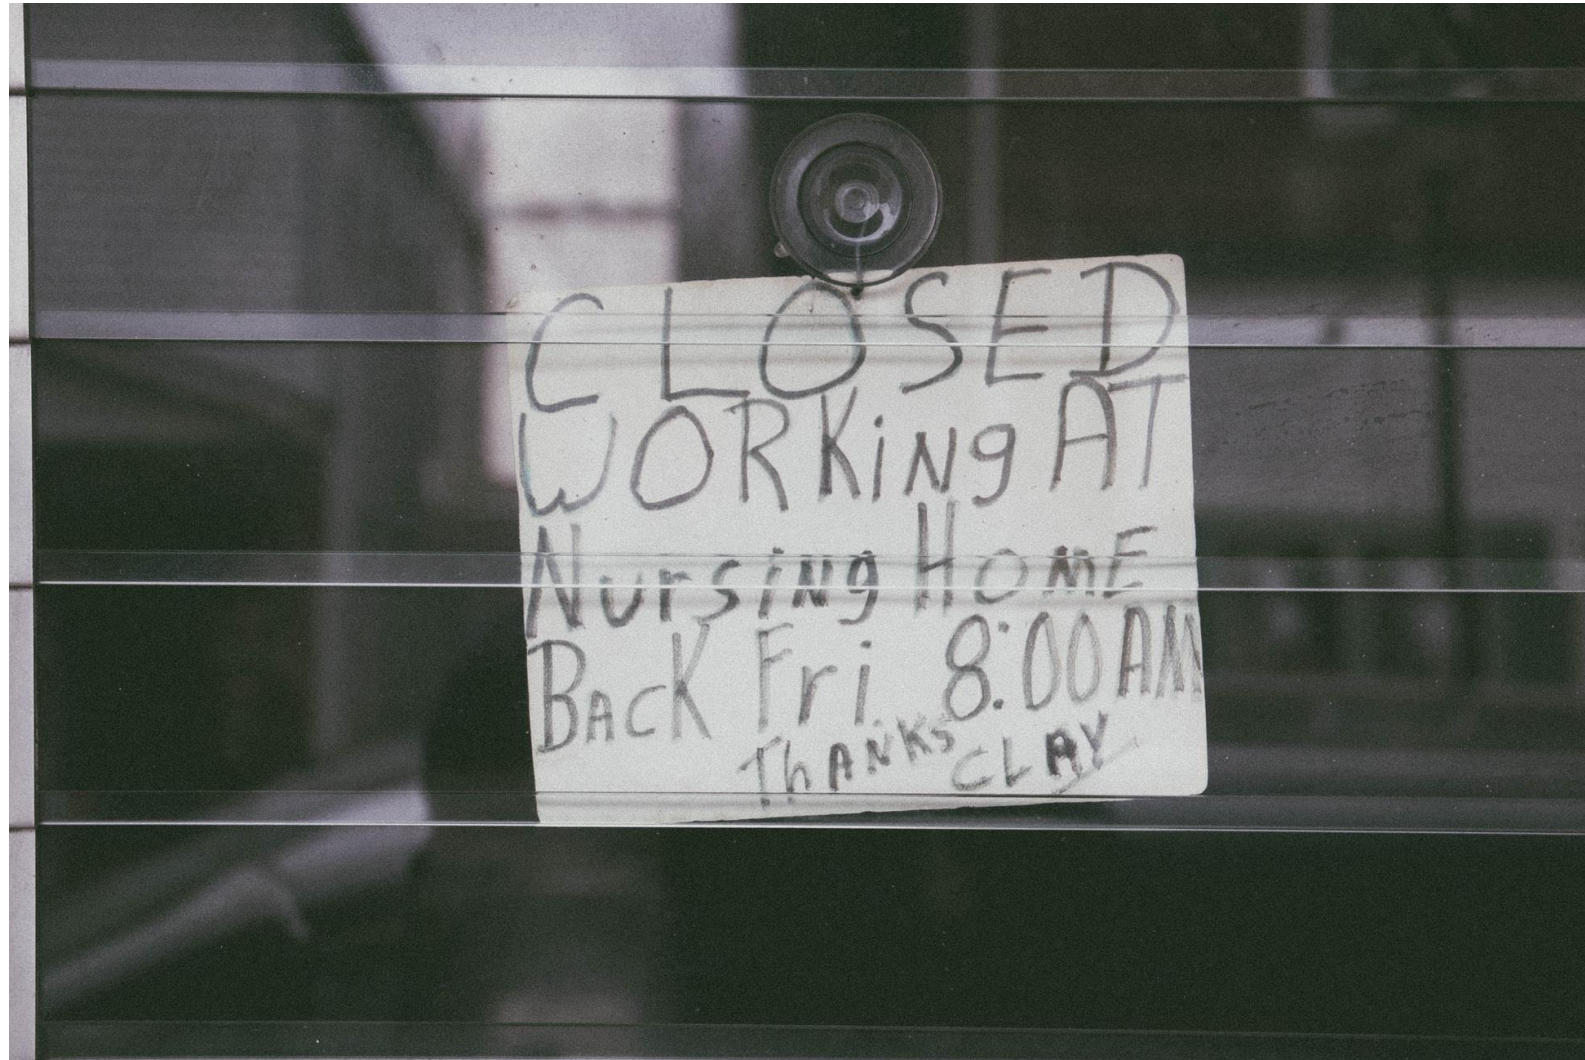 CLOSED
WORKiNg AT
NursiNg HomE
BAcK Fri. 8:00 AM
ThANKS CLAY